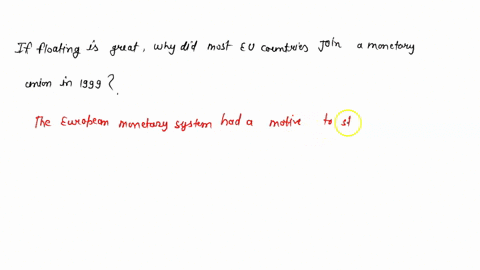 If floating is great, why did most EU countries join a monetary
union in 1999?.
The European monetary system had a motive to st